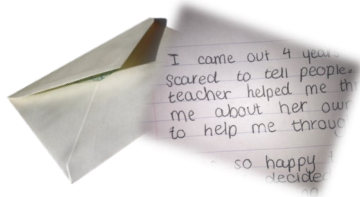 I came out 4 years
scared to tell people.
teacher helped me
me about her own
to help me through
so happy
decided